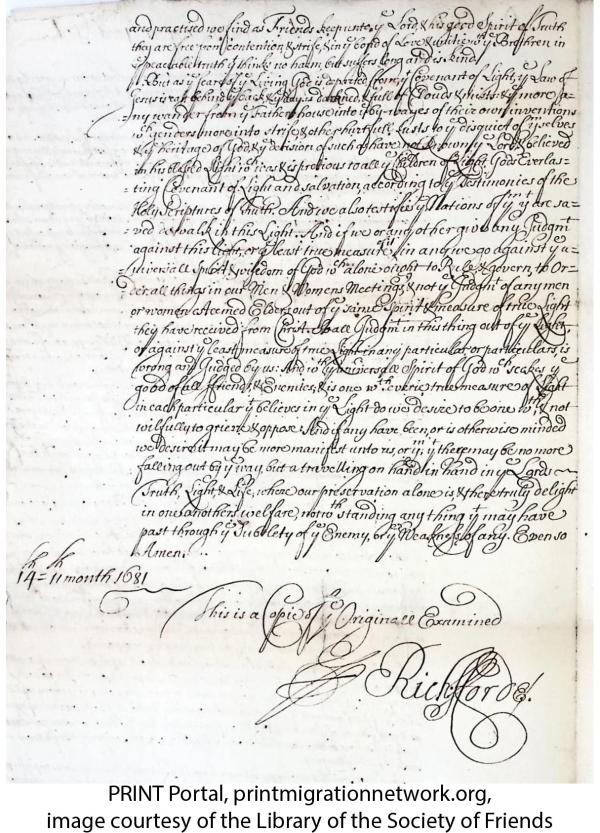 and practised we find as Friends keep unto yᵉ Lord & his good Spirit of Truth
they are free from contention & strife, & in yᵉ bond of Love & unity wᵗʰ yᵉ Brethren, in
yᵉ peaceable truth yᵗ thinks no harm, but suffers long and is kind
But as yᵉ feare of yᵉ Living God is departed from, yᵉ Covenant of Light, yᵉ Law of
Jesus is cast behind yᵉ back & yᵉ day is darkned, & full of Clouds & mists: & yᵉ more ma=
=ny wander from yᵉ Fathers house into yᵉ by-wayes of their own inventions
wᶜʰ genders more into strife & other hurtfull lusts to yᵉ disquiet of yᵐselves
& yᵉ heritage of God, & yᵉ decision of such of have not known yᵉ Lord & believed
in his blessed Light wᶜʰ was & is precious to all yᵉ Children of Light, Gods Everlas=
=ting Covenant of Light and salvation, according to yᵉ Testimonies of the
Holy Scriptures of Truth. And we also testifie yᵉ Nations of yᵐ yᵗ are sa=
=ved do walk in this Light. And if we or any other give any Judgmᵗ
against this Light, or yᵉ least true measure in any we go against yᵉ u=
=niversall Spirit & wisdom of God wᶜʰ alone ought to Rule & govern, to Or=
=der all things in our Men & Womens Meetings, & not yᵉ Judgmᵗ of any men
or women esteemed Elders out of yᵉ same Spirit & measure of true Light
they have received from Christ. & all Judgmᵗ in this thing out of yᵉ Light,
or against yᵉ least measure of true Light in any particular or particulars, is
wrong and Judged by us: And wᵗʰ yᵉ universall Spirit of God wᶜʰ seekes yᵉ
good of all, ffriends & Enemies, & is one wᵗʰ everie true measure of Light
in each particular yᵗ believes in yᵉ Light do we desire to be one wᵗʰ, & not
wilfully to grieve & oppose. And if any have been, or is otherwise minded
we desire it may be more manifest unto us, or yᵐ, yᵗ there may be no more
falling out by yᵉ way, but a travelling on hand in hand in yᵉ Lords
Truth, Light, & Life, where our preservation alone is & there truly delight
in one anothers welfare, notwᵗʰstanding any thing yᵗ may have
past through yᵉ Subtlety of yᵉ Enemy, or yᵉ Weakness of any. Even so
Amen.
14ᵗʰ 11ᵗʰ month 1681
This is a Copie of yᵉ Originall Examined
Rich ffords.
PRINT Portal, printmigrationnetwork.org,
image courtesy of the Library of the Society of Friends